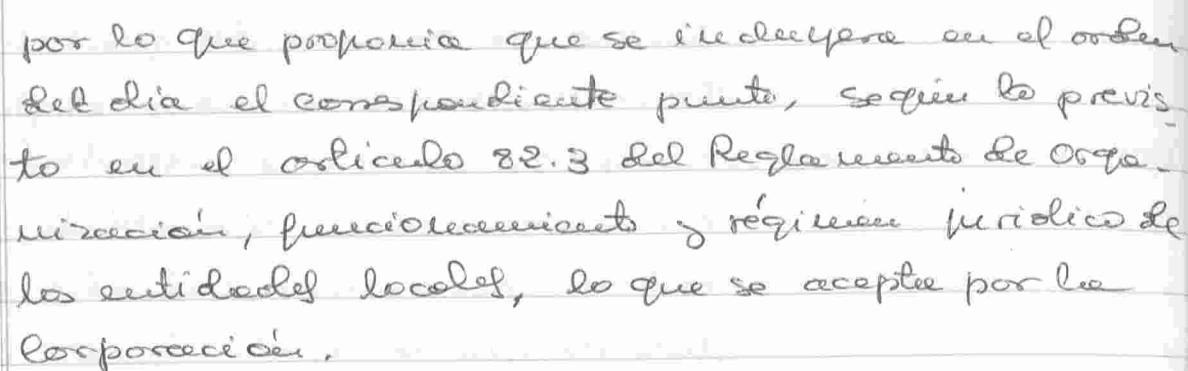 por lo que proponía que se incluyera en el orden
del día el correspondiente punto, según lo previs-
to en el artículo 82.3 del Reglamento de Orga-
nización, funcionamiento y régimen jurídico de
las entidades locales, lo que se acepta por la
Corporación.